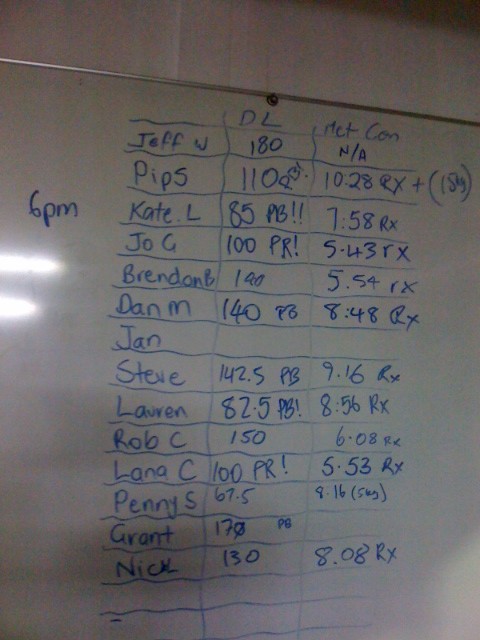 DL Met Con
Jeff W 180 N/A
Pip S 110 10.28 RX + (15kg)
6pm
Kate.L 85 PB!! 7:58 Rx
Jo G 100 PR! 5.43 rx
Brendon B 140 5.54 rx
Dan M 140 PB 8:48 Rx
Jan
Steve 142.5 PB 9.16 Rx
Lauren 82.5 PB! 8:56 Rx
Rob C 150 6.08 Rx
Lana C 100 PR! 5.53 Rx
Penny S 67.5 8.16 (5kg)
Grant 170 PB
Nick 130 8.08 Rx